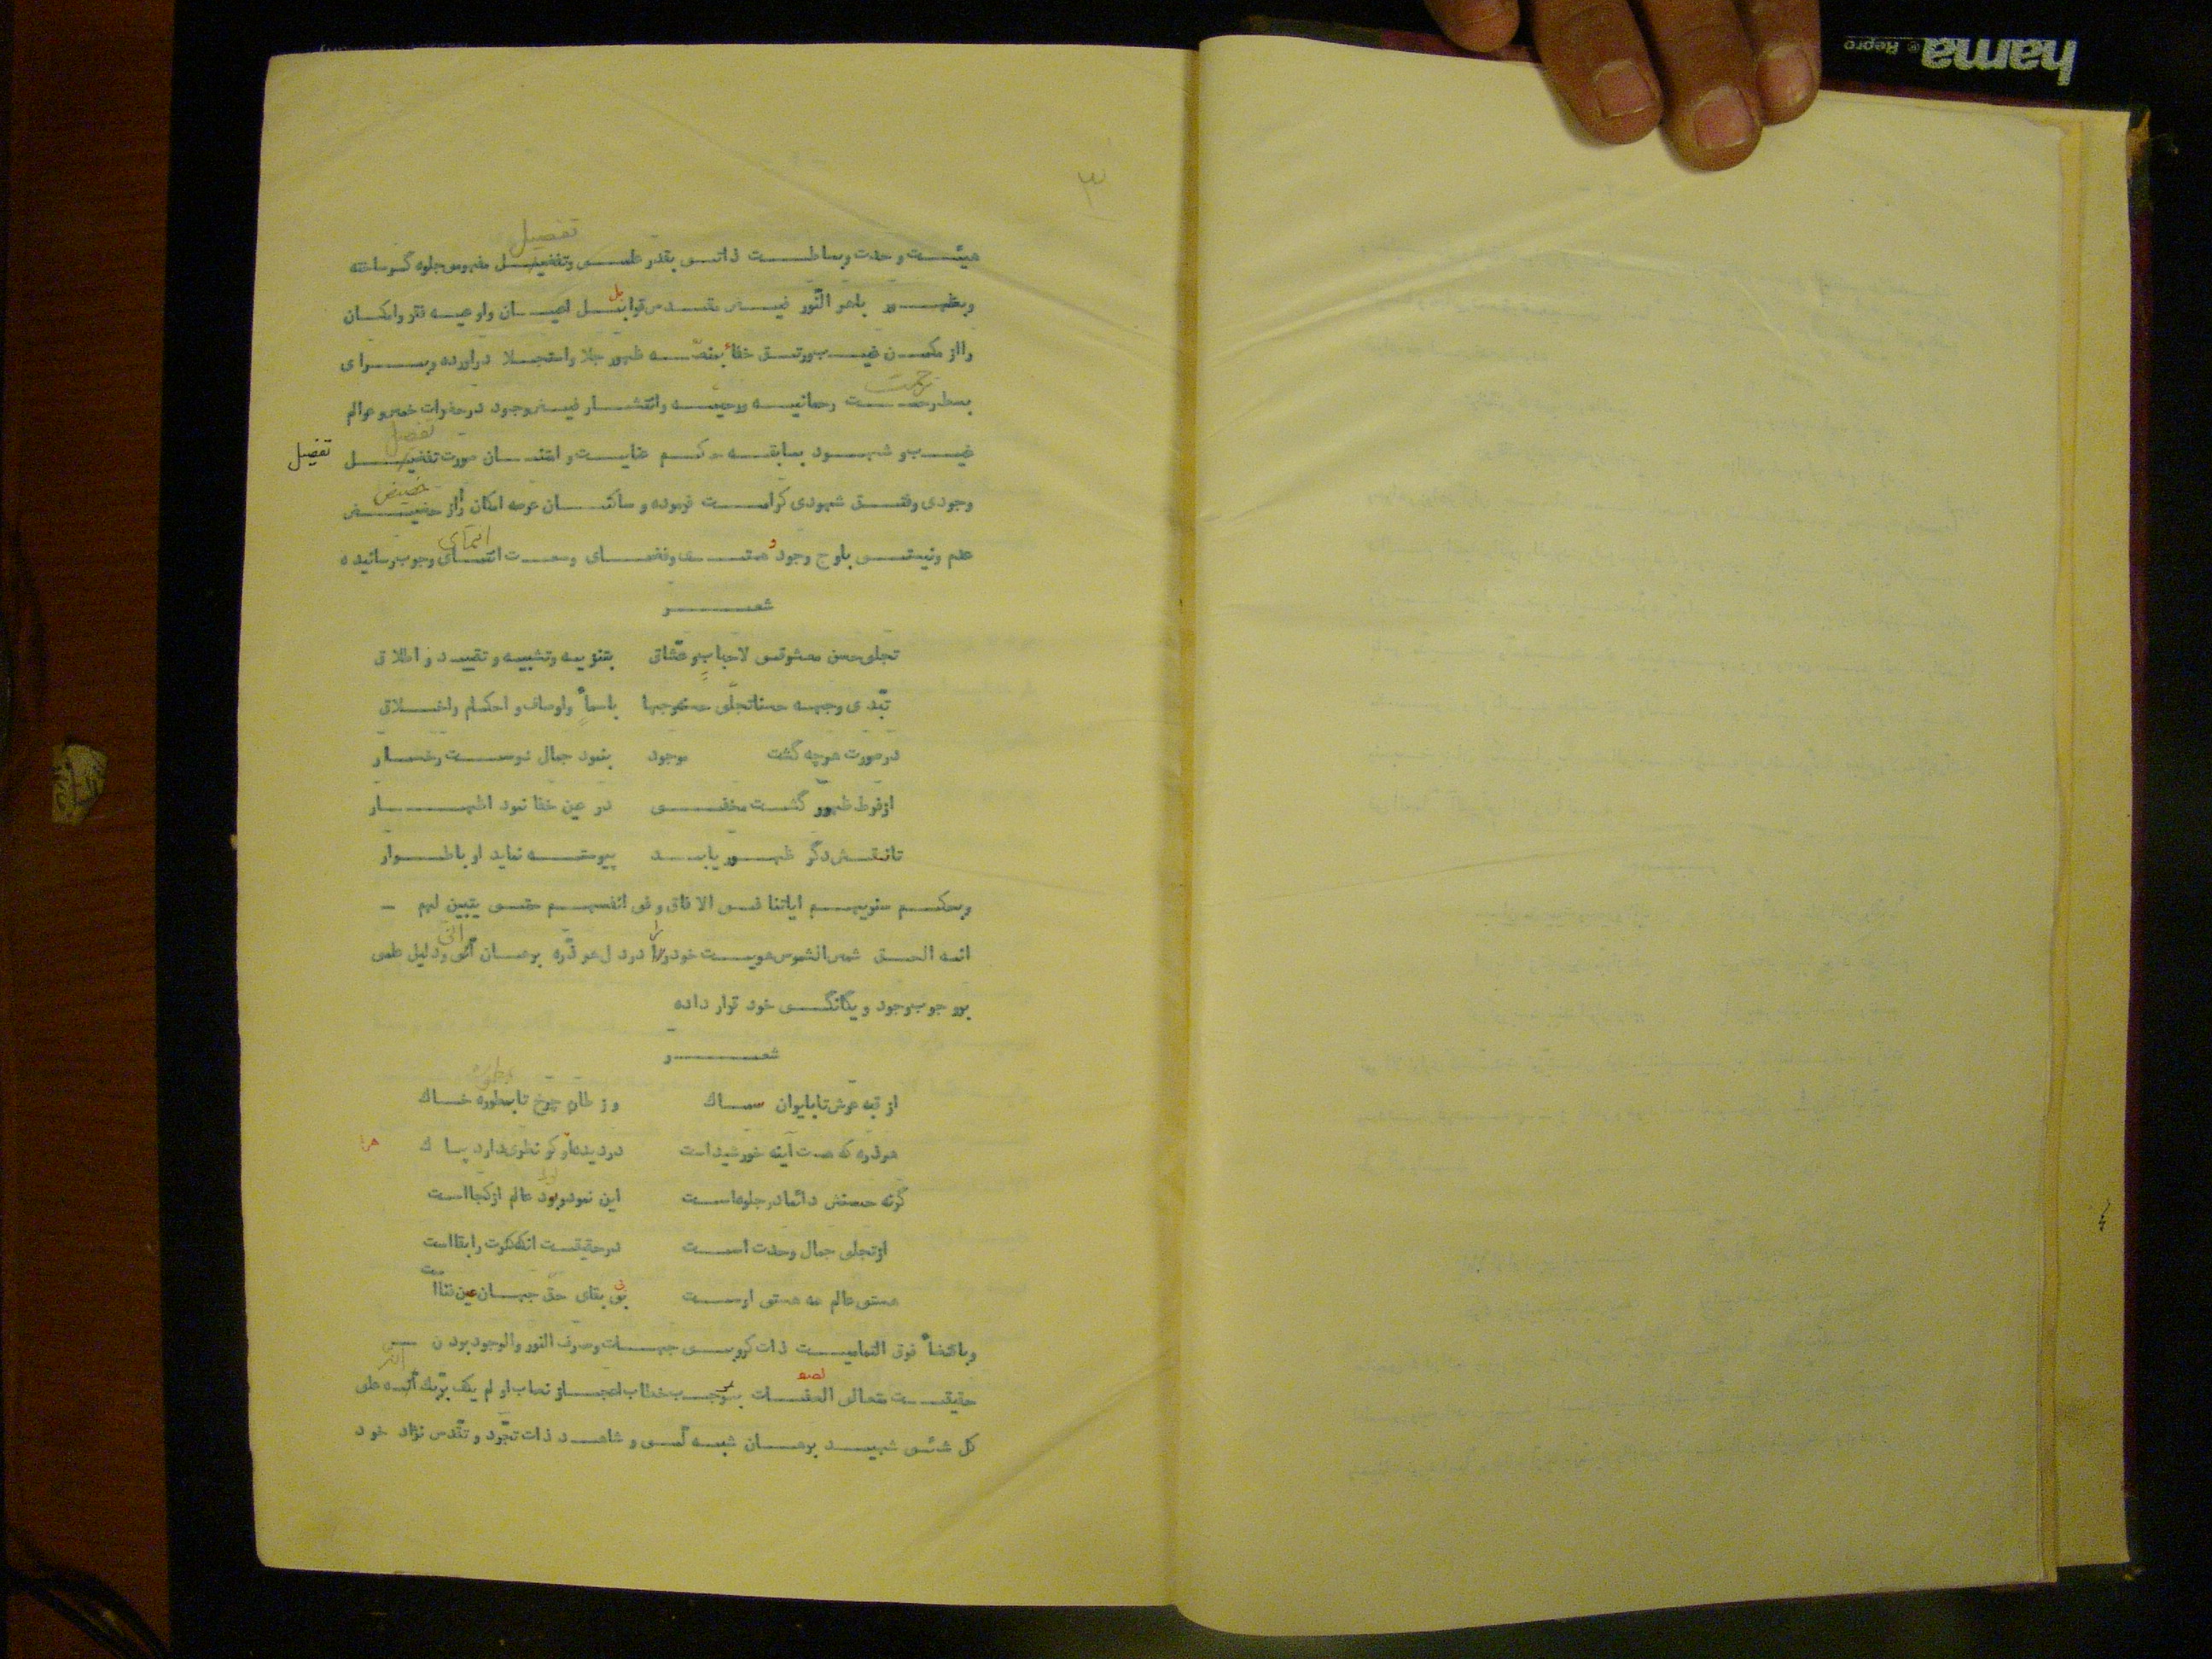 hama ® Repro
۳
تفصیل
هیئت وحدت وبساطت ذاتی بقدر علمی وتفضیل مفهومی جلوه گر ساخته
وبظهور باهر النّور فیض مقدس قوابل اعیان واوعیه فقر وامکان
رااز مکمن غیب ورتق خفاء بمنصّه ظهور جلا واستجلا دراورده وبرای
رحمت
بسط رحمت رحمانیه ورحیمیّه وانتشار فیض وجود در حضرات خمس وعوالم
تفصیل
غیب و شهود بسابقه حکم عنایت و امتنان صورت تفضیل
تفصیل
حضیض
وجودی وفتق شهودی کرامت فرموده و ساکنان عرصه امکان رااز حضیض
انتمای
عدم ونیستی باوج وجود و هستی وفضای وسعت انتمای وجوب رسانیده
شعر
تجلی حسن معشوقی لاحباب وعشاق بتنزیه وتشبیه وتقیید و اطلاق
تبّدی وجهه حسنا تجلّی حسنه وجها باسماءٍ واوصاف و احکام واخلاق
درصورت هرچه گشت موجود بنمود جمال دوست رخسار
ازفرط ظهور گشت مخفی در عین خفا نمود اظهار
تانقش دگر ظهور یابد پیوسته نماید او باطوار
وبحکم سنریهم ایاتنا فی الافاق وفی انفسهم حتی یتبین لهم
انّی
انه الحق شمس الشموس هویت خود را درد ل هر ذرّه برهان انّی ودلیل علمی
بور جوب وجود ویگانگی خود قرار داده
شعر
از قبه عرش تا بایوان سماك و ز طاق چرخ تا بمطوره خاك
هر ذره که هست آینه خورشیداست دردیده او کو نظری دارد پاك
گرنه حسنش دائما در جلوه است این نمود وبود عالم از کجااست
از تجلی جمال وحدت است در حقیقت انکه کثرت را بقااست
هستی عالم همه هستی اوست بی بقای حق جهان عین فنا است
وباقتضاءً فوق التمامیت ذات کروبی جهات وصرف النور والوجود بودن
حقیقت متعالی الصفات بموجب خطاب اعجاز نصاب او لم یکف بربّك انّه علی
کل شئی شهید برهان شبه لمی و شاهد ذات تجرّد و تقدس نژاد خود